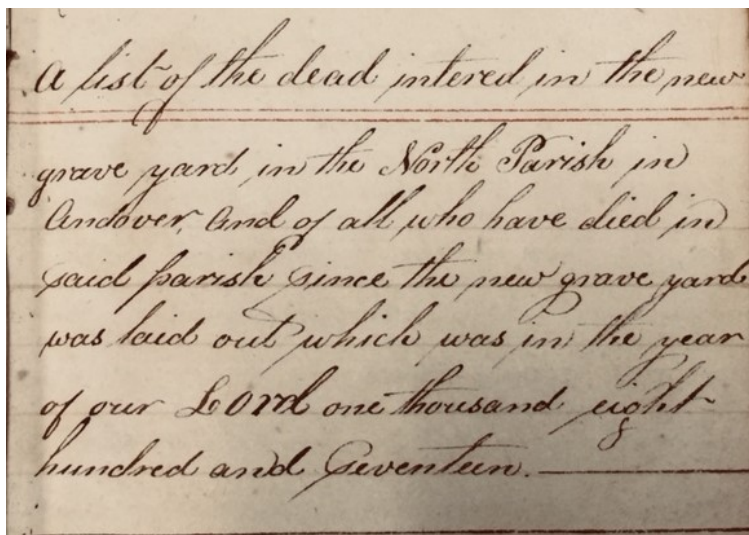 A list of the dead intered in the new
grave yard in the North Parish in
Andover, And of all who have died in
said parish since the new grave yard
was laid out which was in the year
of our Lord one thousand eight
hundred and Seventeen.